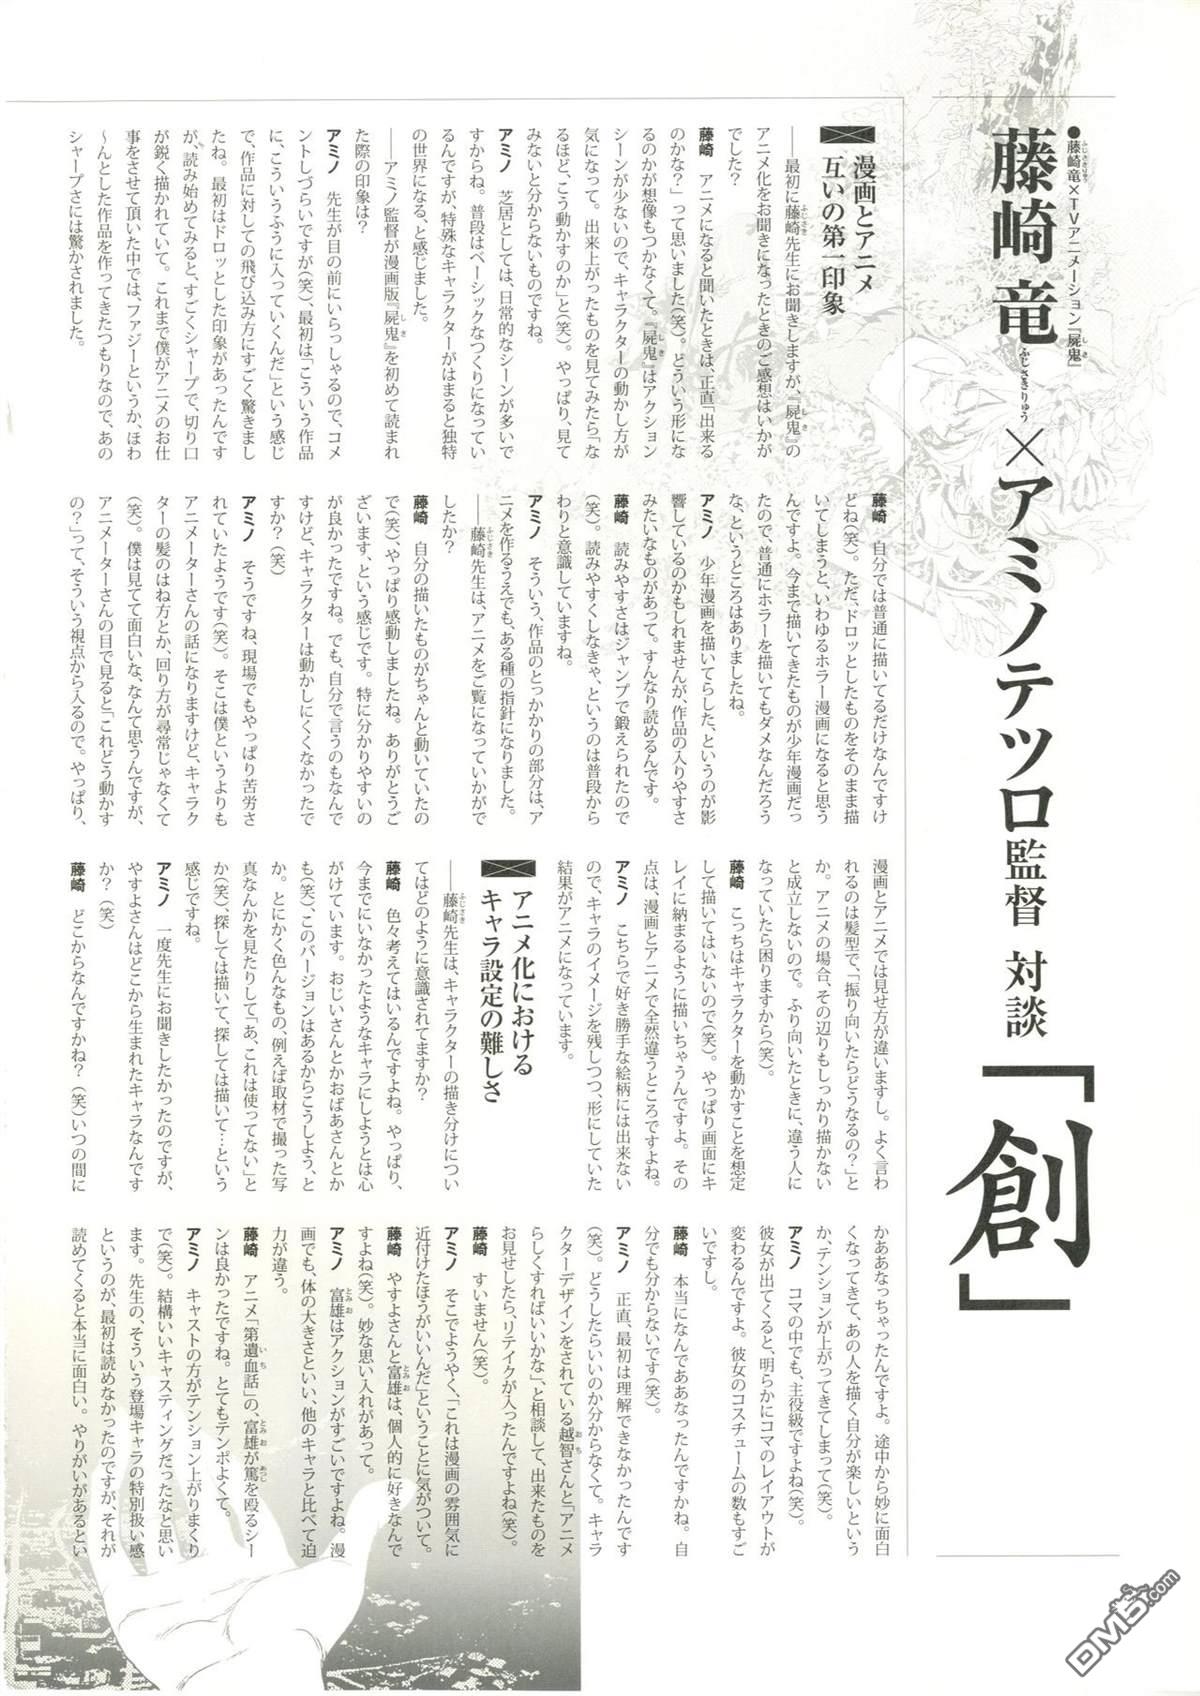 ●藤崎竜×TVアニメーション『屍鬼』
藤崎 竜×アミノテツロ監督 対談「創」
漫画とアニメ
互いの第一印象
――最初に藤崎先生にお聞きしますが、『屍鬼』の
アニメ化をお聞きになったときのご感想はいかが
でした？
藤崎　アニメになると聞いたときは、正直「出来る
のかな？」って思いました(笑)。どういう形にな
るのかが想像もつかなくて。『屍鬼』はアクション
シーンが少ないので、キャラクターの動かし方が
気になって。出来上がったものを見てみたら「な
るほど、こう動かすのか」と(笑)。やっぱり、見て
みないと分からないものですね。
アミノ　芝居としては、日常的なシーンが多いで
すからね。普段はベーシックなつくりになってい
るんですが、特殊なキャラクターがはまると独特
の世界になる、と感じました。
――アミノ監督が漫画版『屍鬼』を初めて読まれ
た際の印象は？
アミノ　先生が目の前にいらっしゃるので、コメ
ントしづらいですが(笑)、最初は「こういう作品
に、こういうふうに入っていくんだ」という感じ
で、作品に対しての飛び込み方にすごく驚きまし
たね。最初はドロッとした印象があったんです
が、読み始めてみると、すごくシャープで、切り口
が鋭く描かれていて。これまで僕がアニメのお仕
事をさせて頂いた中では、ファジーというか、ほわ
～んとした作品を作ってきたつもりなので、あの
シャープさには驚かされました。
藤崎　自分では普通に描いてるだけなんですけ
どね(笑)。ただ、ドロッとしたものをそのまま描
いてしまうと、いわゆるホラー漫画になると思う
んですよ。今まで描いてきたものが少年漫画だっ
たので、普通にホラーを描いてもダメなんだろう
な、というところはありましたね。
アミノ　少年漫画を描いてらした、というのが影
響しているのかもしれませんが、作品の入りやすさ
みたいなものがあって。すんなり読めるんです。
藤崎　読みやすさはジャンプで鍛えられたので
(笑)。読みやすくしなきゃ、というのは普段から
わりと意識していますね。
アミノ　そういう、作品のとっかかりの部分は、ア
ニメを作るうえでも、ある種の指針になりました。
――藤崎先生は、アニメをご覧になっていかがで
したか？
藤崎　自分の描いたものがちゃんと動いていたの
で(笑)、やっぱり感動しましたね。ありがとうご
ざいます、という感じです。特に分かりやすいの
が良かったですね。でも、自分で言うのもなんで
すけど、キャラクターは動かしにくくなかったで
すか？(笑)
アミノ　そうですね、現場でもやっぱり苦労さ
れていたようです(笑)。そこは僕というよりも
アニメーターさんの話になりますけど、キャラク
ターの髪のはね方とか、回り方が尋常じゃなくて
(笑)。僕は見てて面白いな、なんて思うんですが、
アニメーターさんの目で見ると「これどう動かす
の？」って、そういう視点から入るので。やっぱり、
漫画とアニメでは見せ方が違いますし。よく言わ
れるのは髪型で、「振り向いたらどうなるの？」と
か。アニメの場合、その辺りもしっかり描かない
と成立しないので。ふり向いたときに、違う人に
なっていたら困りますから(笑)。
藤崎　こっちはキャラクターを動かすことを想定
して描いてはいないので(笑)。やっぱり画面にキ
レイに納まるように描いちゃうんですよ。その
点は、漫画とアニメで全然違うところですよね。
アミノ　こちらで好き勝手な絵柄には出来ない
ので、キャラのイメージを残しつつ、形にしていた
結果がアニメになっています。
アニメ化における
キャラ設定の難しさ
――藤崎先生は、キャラクターの描き分けについ
てはどのように意識されてますか？
藤崎　色々考えてはいるんですよね。やっぱり、
今までにいなかったようなキャラにしようとは心
がけています。おじいさんとかおばあさんとか
も(笑)、このバージョンはあるからこうしよう、と
か。とにかく色んなもの、例えば取材で撮った写
真なんかを見たりして「あ、これは使ってない」と
か(笑)、探しては描いて、探しては描いて…という
感じですね。
アミノ　一度先生にお聞きしたかったのですが、
やすよさんはどこから生まれたキャラなんです
か？(笑)
藤崎　どこからなんですかね？(笑)いつの間に
かああなっちゃったんですよ。途中から妙に面白
くなってきて、あの人を描く自分が楽しいという
か、テンションが上がってきてしまって(笑)。
アミノ　コマの中でも、主役級ですよね(笑)。
彼女が出てくると、明らかにコマのレイアウトが
変わるんですよ。彼女のコスチュームの数もすご
いですし。
藤崎　本当になんでああなったんですかね。自
分でも分からないです(笑)。
アミノ　正直、最初は理解できなかったんです
(笑)。どうしたらいいのか分からなくて。キャラ
クターデザインをされている越智さんと「アニメ
らしくすればいいかな」、と相談して、出来たものを
お見せしたら、リテイクが入ったんですよね(笑)。
藤崎　すいません(笑)。
アミノ　そこでようやく、「これは漫画の雰囲気に
近付けたほうがいいんだ」ということに気がついて。
藤崎　やすよさんと富雄は、個人的に好きなんで
すよね(笑)。妙な思い入れがあって。
アミノ　富雄はアクションがすごいですよね。漫
画でも、体の大きさといい、他のキャラと比べて迫
力が違う。
藤崎　アニメ「第遺血話」の、富雄が篤を殴るシー
ンは良かったですね。とてもテンポよくて。
アミノ　キャストの方がテンション上がりまくり
で(笑)。結構いいキャスティングだったなと思い
ます。先生の、そういう登場キャラの特別扱い感
というのが、最初は読めなかったのですが、それが
読めてくると本当に面白い。やりがいがあるとい
DM5.com